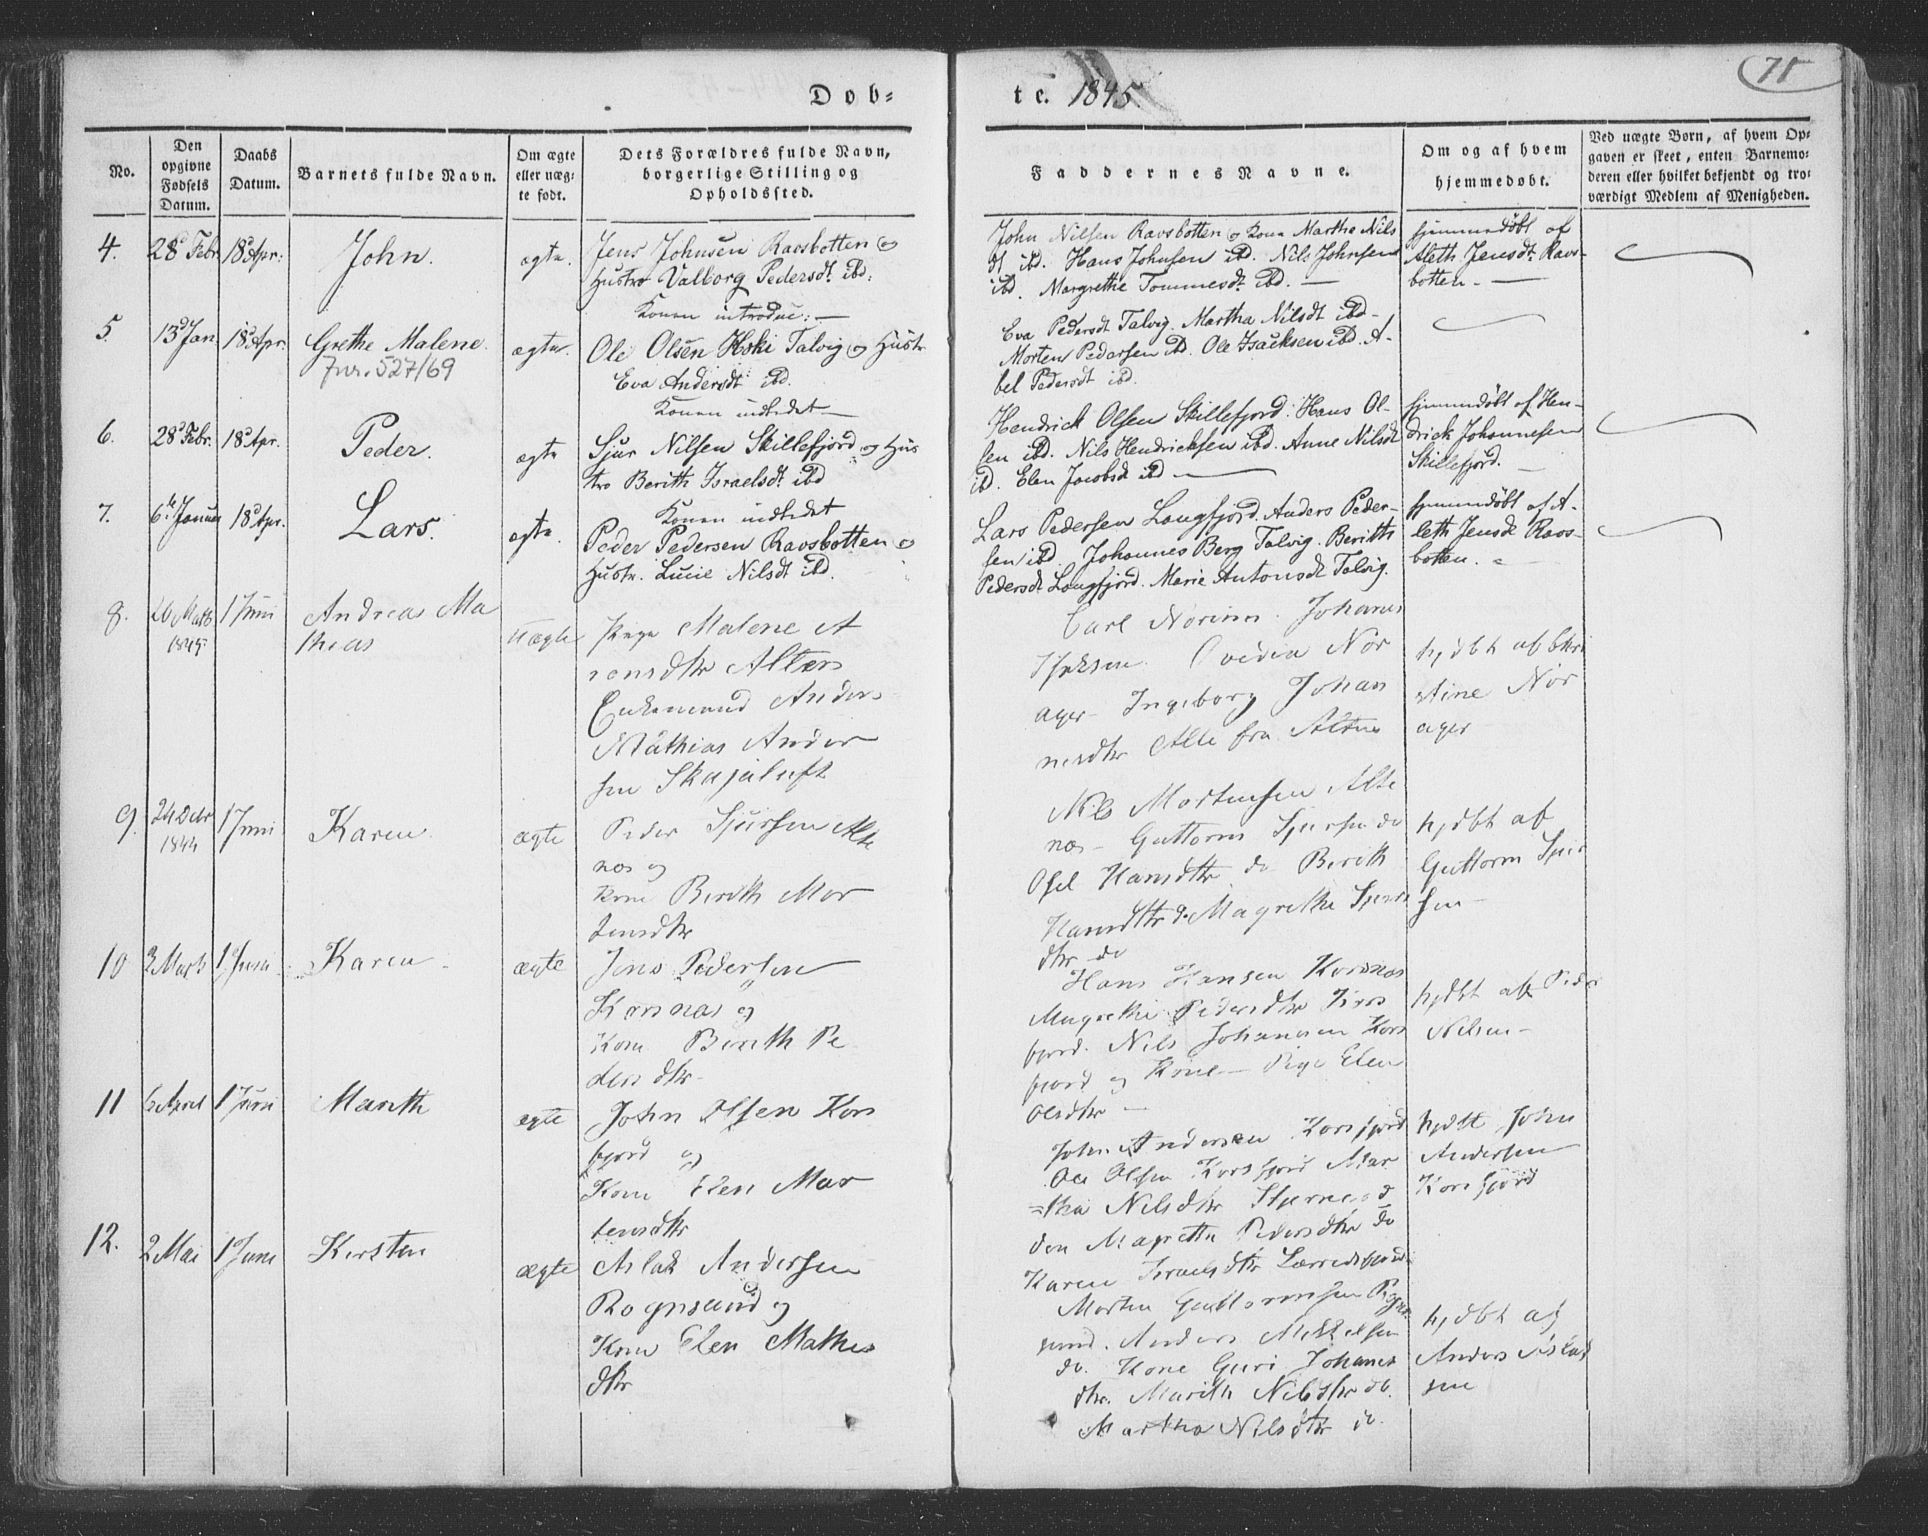 Døb-
te. 1845.
71
No.
Den opgivne Fødsels Datum.
Daabs Datum.
Barnets fulde Navn.
Om ægte eller uægte født.
Dets Forældres fulde Navn, borgerlige Stilling og Opholdssted.
Faddernes Navne.
Om og af hvem hjemmedøbt.
Ved uægte Børn, af hvem Opgaven er skeet, enten Barnemoderen eller hvilket bekjendt og troværdigt Medlem af Menigheden.
4. 28d Febr. 18d Apr. John. ægte.
Jens Johnsen Ravsbotten og
Hustro Valborg Pedersdt. ibd.
Konen introduc:
John Nilsen Ravsbotten og Kone Martha Nils
dt. ibd. Hans Johnsen ibd. Nils Johnsen
ibd. Margrethe Tommesdt. ibd.
hjemmedøbt af
Aleth Jensdt. Ravs-
botten.
5. 13d Jan 18d Apr. Grethe Malene. ægte.
Jnr. 527/69
Ole Olsen Talvig og Hustr.
Eva Andersdt ibd.
Konen indledet
Eva Pedersdt Talvig. Martha Nilsdt ibd.
Morten Pedersen ibd. Ole Isacksen ibd. A-
bel Pedersdt ibd.
6. 28d Febr. 18d Apr. Peder. ægte
Sjur Nilsen Skillefjord og Hus
tro Berith Israelsdt. ibd
Konen indledet
Hendrick Olsen Skillefjord. Hans Ol-
sen ibd. Nils Hendricksen ibd. Anne Nilsdt
ibd. Elen Jacobsdt ibd
hjemmedøbt af Hen-
drick Johannesen
Skillefjord.
7. 6te Januar 18d Apr. Lars. ægte.
Peder Pedersen Ravsbotten og
Hustr. Lucie Nilsdt ibd.
Lars Pedersen Langfjord. Anders Peder-
sen ibd. Johannes Berg Talvig. Berith
Pedersdt Langfjord. Marie Antonsdt Talvig.
hjemmedøbt af A-
leth Jensdt Ravs-
botten.
8. 26 Marts 1845 1 Juni Andreas Ma
thias Uægte
Pige Malene A
ronsdtr Altens
Enkemand Anders
Mathias Ander
sen Skajaluft
Carl Norum. Johanes
Isaksen. Ovedia Nor
ager - Ingeborg Johan
nesdtr Alle fra Altnes
hjdbt af Chri
stine Nor
ager
9. 24 Debr 1844 1 Juni Karen. ægte
Peder Sjursen Alte
næs og
Kone Berith Mor
tensdtr
Nils Mortensen Alte
næs - Guttorm Sjursen do
Hansdtr do Berith
Hansdtr do Magrethe Sjurs
dtr do
hjdbt af
Guttorm Sjur
sen -
10 3 Marts 1 Juni Karen ægte
Jens Pedersen
Korsnæs og
Kone Berith Pe
dersdtr -
Hans Hansen Korsnæs
Magrethe Pedersdtr Kors
fjord. Nils Johansen Kors
fjord og Kone - Pige Elen
Olsdtr -
hjdbt af Peder
Nilsen -
11 6 April 1 Juni Marith ægte
John Olsen Kors
fjord og
Kone Elen Mor
tensdtr
John Andersen Korsfjord
Ole Olsen Korsfjord Mar
tha Nilsdtr
den Magrethe Pedersdtr do
Karen Israelsdtr Lerredsfjord
hjdbt John
Andersen
Korsfjord
12. 2 Mai 1 Juni Kirsten ægte
Aslak Andersen
Rognsund og
Kone Elen Mathis
dtr
Morten Guttormsen Rogn
sund. Anders Mikkelsen
do. Kone Guri Johanes
dtr. Marith Nilsdtr do.
Martha Nilsdtr do.
hjdbt af
Anders Aslak
sen